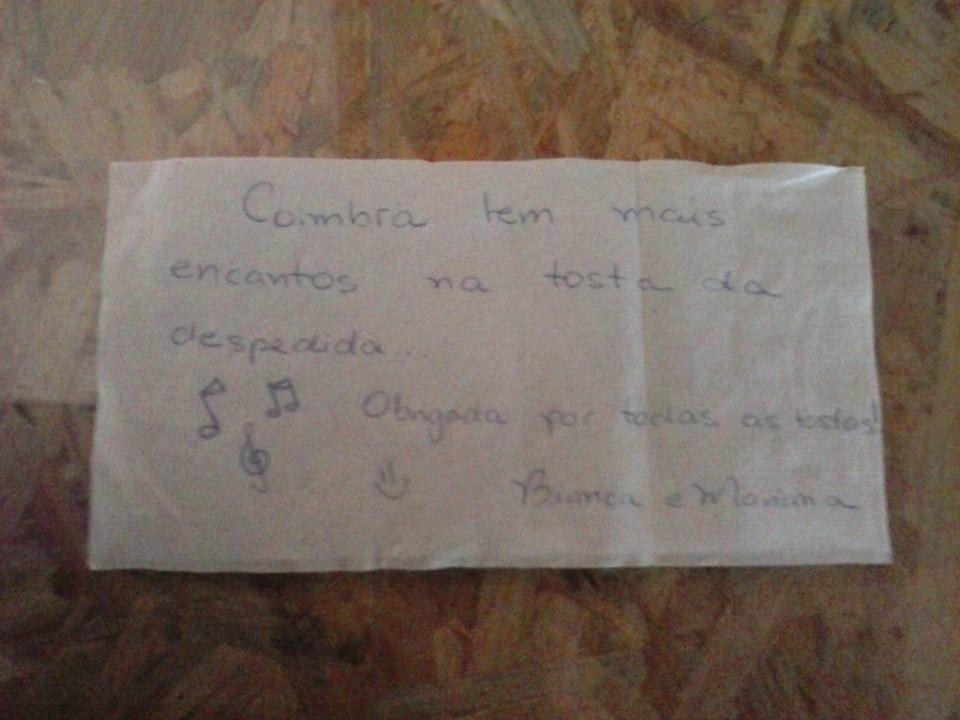 Coimbra tem mais
encantos na tosta da
despedida...
Obrigada por todas as tostas!
Bianca e Mariana